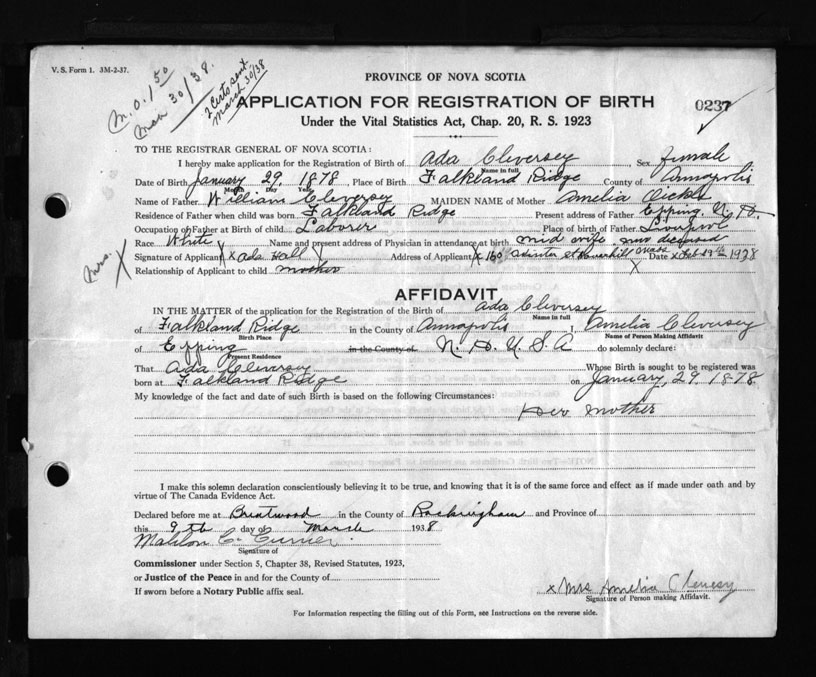 V. S. Form 1. 3M-2-37.
M.O. 1.50
Mar 30/38.
2 Certs sent
March 30/38
PROVINCE OF NOVA SCOTIA
APPLICATION FOR REGISTRATION OF BIRTH
0237
Under the Vital Statistics Act, Chap. 20, R. S. 1923
TO THE REGISTRAR GENERAL OF NOVA SCOTIA:
I hereby make application for the Registration of Birth of Ada Cleversey Sex female
Name in full
Date of Birth January 29, 1878 Place of Birth Falkland Ridge County of Annapolis
Month Day Year
Name of Father William Cleversey MAIDEN NAME of Mother Amelia Oickle
Residence of Father when child was born Falkland Ridge Present address of Father Epping, N.H.
Occupation of Father at Birth of child Laborer Place of birth of Father Liverpool
Race White Name and present address of Physician in attendance at birth mid wife now deceased
Mrs. X
Signature of Applicant x Ada Hall Address of Applicant x 160 St Haverhill Mass Date x Feb 29th 1938
Relationship of Applicant to child mother
AFFIDAVIT
IN THE MATTER of the application for the Registration of the Birth of Ada Cleversey
Name in full
of Falkland Ridge in the County of Annapolis I, Amelia Cleversey
Birth Place Name of Person Making Affidavit
of Epping in the County of N. H. U. S. A do solemnly declare:
Present Residence
That Ada Cleversey Whose Birth is sought to be registered was
born at Falkland Ridge on January, 29, 1878
My knowledge of the fact and date of such Birth is based on the following Circumstances:
Her mother
I make this solemn declaration conscientiously believing it to be true, and knowing that it is of the same force and effect as if made under oath and by
virtue of The Canada Evidence Act.
Declared before me at Brentwood in the County of Rockingham and Province of
this 9th day of March 1938
Mahlon C. Currier
Signature of
Commissioner under Section 5, Chapter 38, Revised Statutes, 1923,
or Justice of the Peace in and for the County of
If sworn before a Notary Public affix seal.
x Mrs Amelia Clevesy
Signature of Person making Affidavit.
For Information respecting the filling out of this Form, see Instructions on the reverse side.